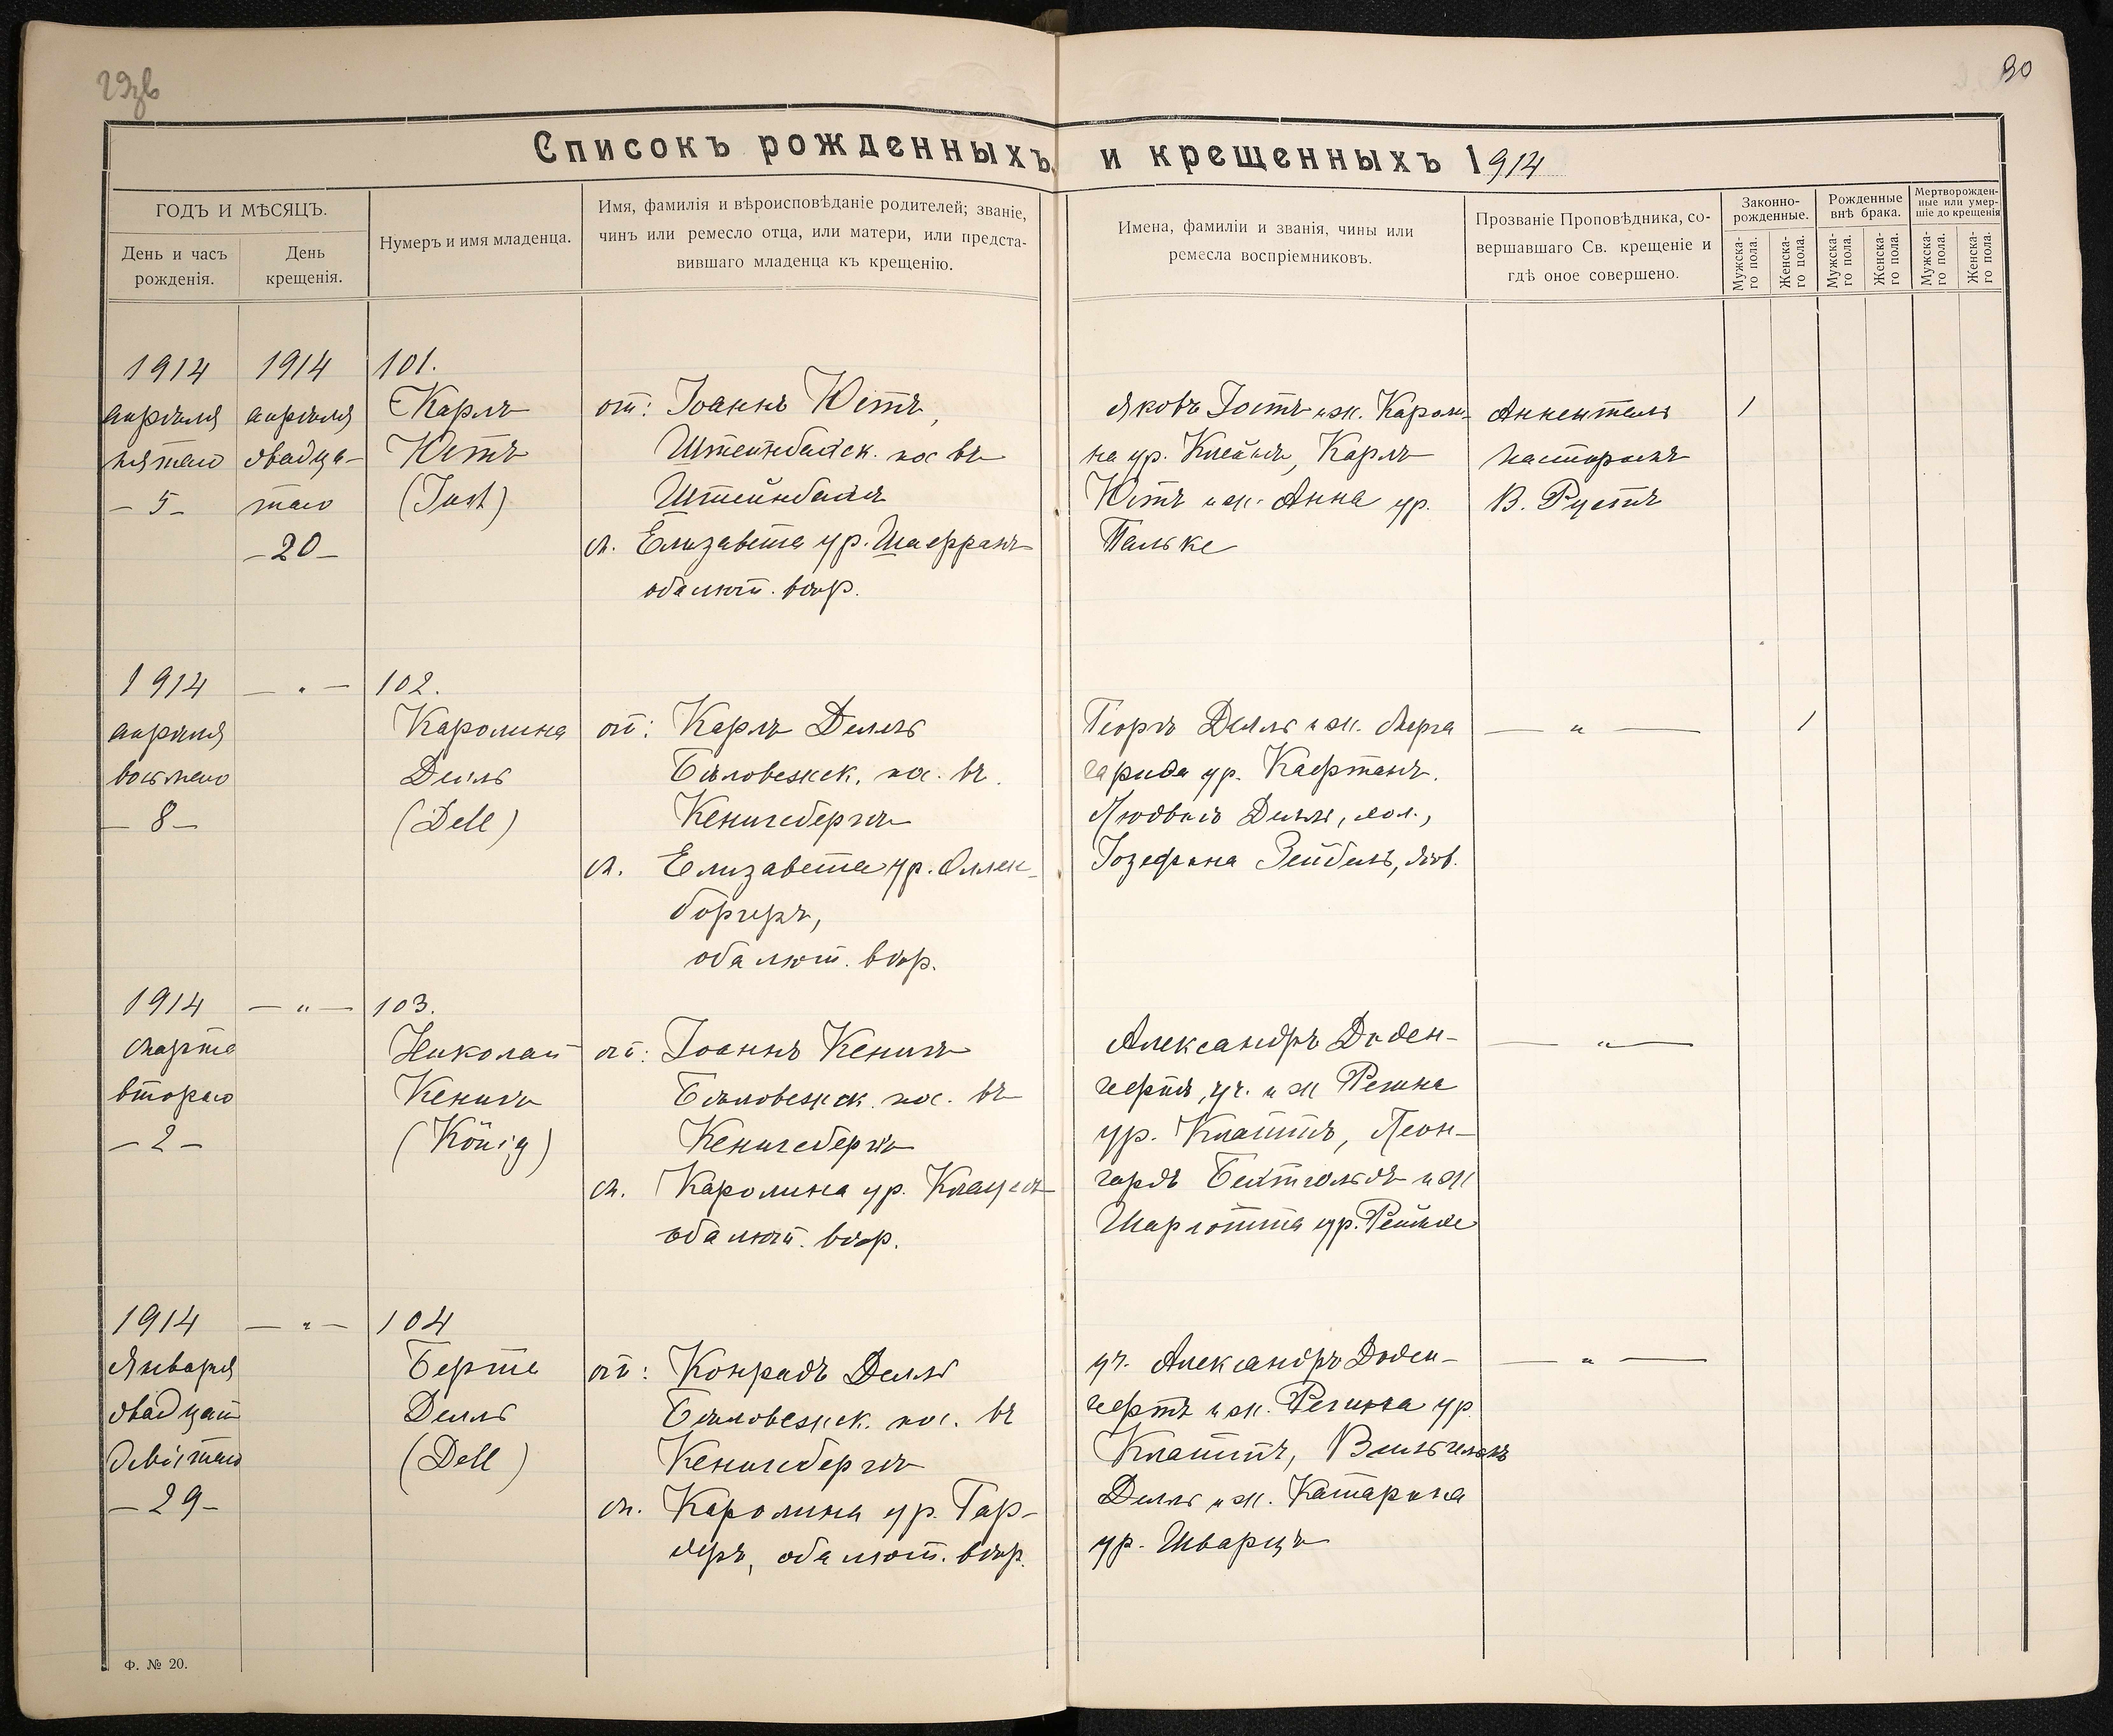 30
Списокъ рожденныхъ и крещенныхъ 1914
ГОДЪ И МѢСЯЦЪ.
День и часъ рожденія.
День крещенія.
Нумеръ и имя младенца.
Имя, фамилія и вѣроисповѣданіе родителей; званіе,
чинъ или ремесло отца, или матери, или предста-
вившаго младенца къ крещенію.
Имена, фамиліи и званія, чины или
ремесла воспріемниковъ.
Прозваніе Проповѣдника, со-
вершавшаго Св. крещеніе и
гдѣ оное совершено.
Законно-
рожденные.
Рожденные
внѣ брака.
Мертворожден-
ные или умер-
шіе до крещенія
Мужска-
го пола.
Женска-
го пола.
Мужска-
го пола.
Женска-
го пола.
Мужска-
го пола.
Женска-
го пола.
1914
апрѣля
пятаго
- 5 -
1914
апрѣля
двадца-
таго
- 20 -
101.
Карлъ
Юстъ
(Just)
от: Іоаннъ Юстъ,
пос въ
м. Елизавета ур. Шаерранъ
оба лют. вѣр.
Яковъ Іостъ и ж. Кароли-
на ур. Клейнъ, Карлъ
Юстъ и ж. Анна ур.
Пальке
Анненталь
пасторомъ
В. Рустъ
1
1914
апрѣля
восьмого
- 8 -
— " —
102.
Каролина
Делль
(Dell)
от: Карлъ Делль
Бѣловежск. пос. въ
Кенигсбергъ
м. Елизавета ур. Оллен-
боргеръ,
оба лют. вѣр.
Георгъ Делль и ж. Марга
рида ур. Кафтанъ.
Людвигъ Делль, хол.,
Іозефина Зейбель, дѣв.
— " —
1
1914
марта
второго
- 2 -
— " —
103.
Николай
Кенигъ
(König)
от: Іоаннъ Кенигъ
Бѣловежск. пос. въ
Кенигсбергъ
м. Каролина ур. Клаусъ
оба лют. вѣр.
Александръ Доден-
гефтъ, уч. и ж Регина
ур. Клаттъ, Леон-
гардъ и ж
Шарлотта ур.
— " —
1914
Января
двадцать
девятаго
- 29 -
— " —
104
Берта
Делль
(Dell)
от: Конрадъ Делль
Бѣловежск. пос. въ
Кенигсбергъ
м. Каролина ур. Гар-
оба лют. вѣр.
уч. Александръ Доден-
гефтъ и ж. Регина ур.
Клаттъ, Вильгельмъ
Делль и ж. Катарина
ур. Шварцъ
— " —
Ф. № 20.